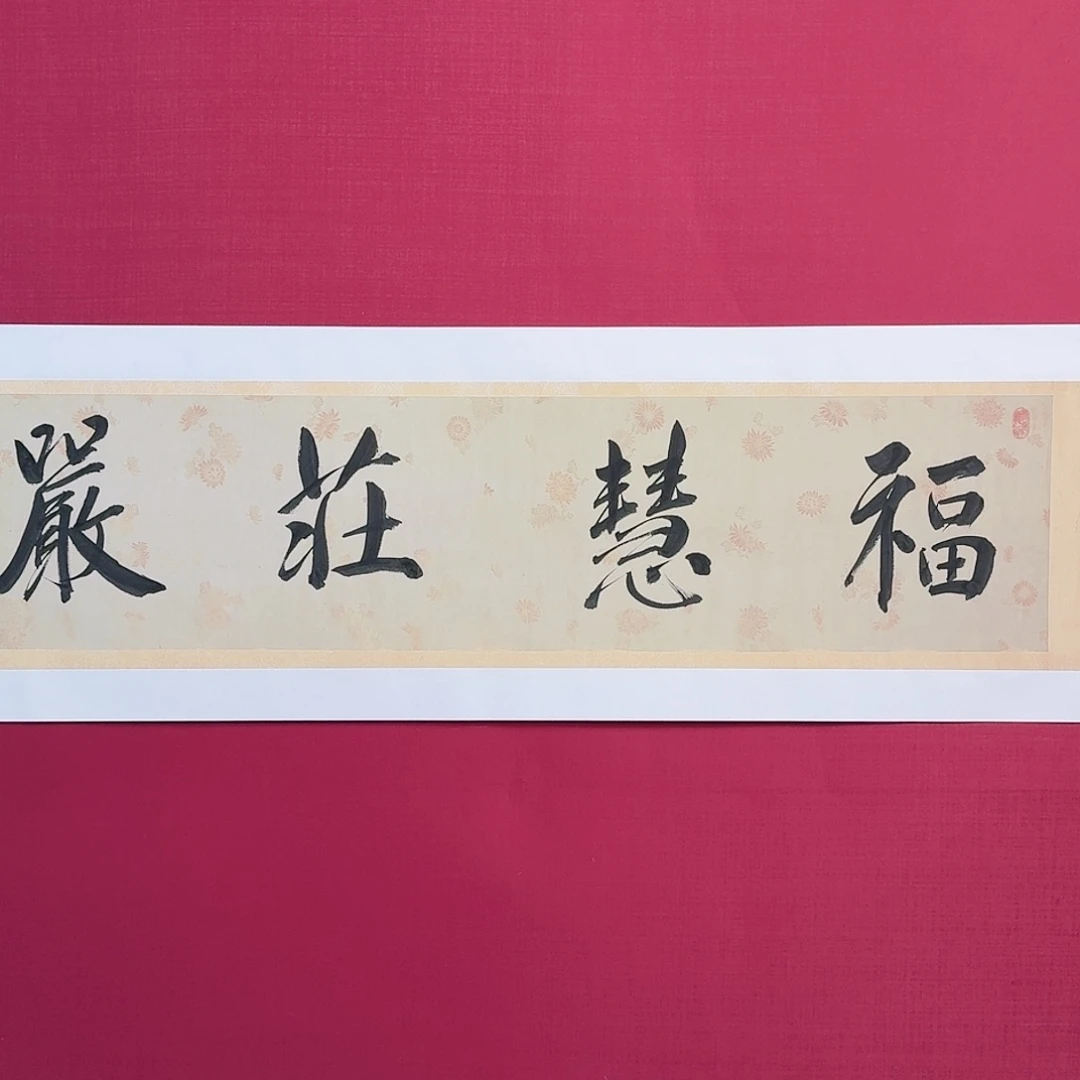 福慧莊嚴